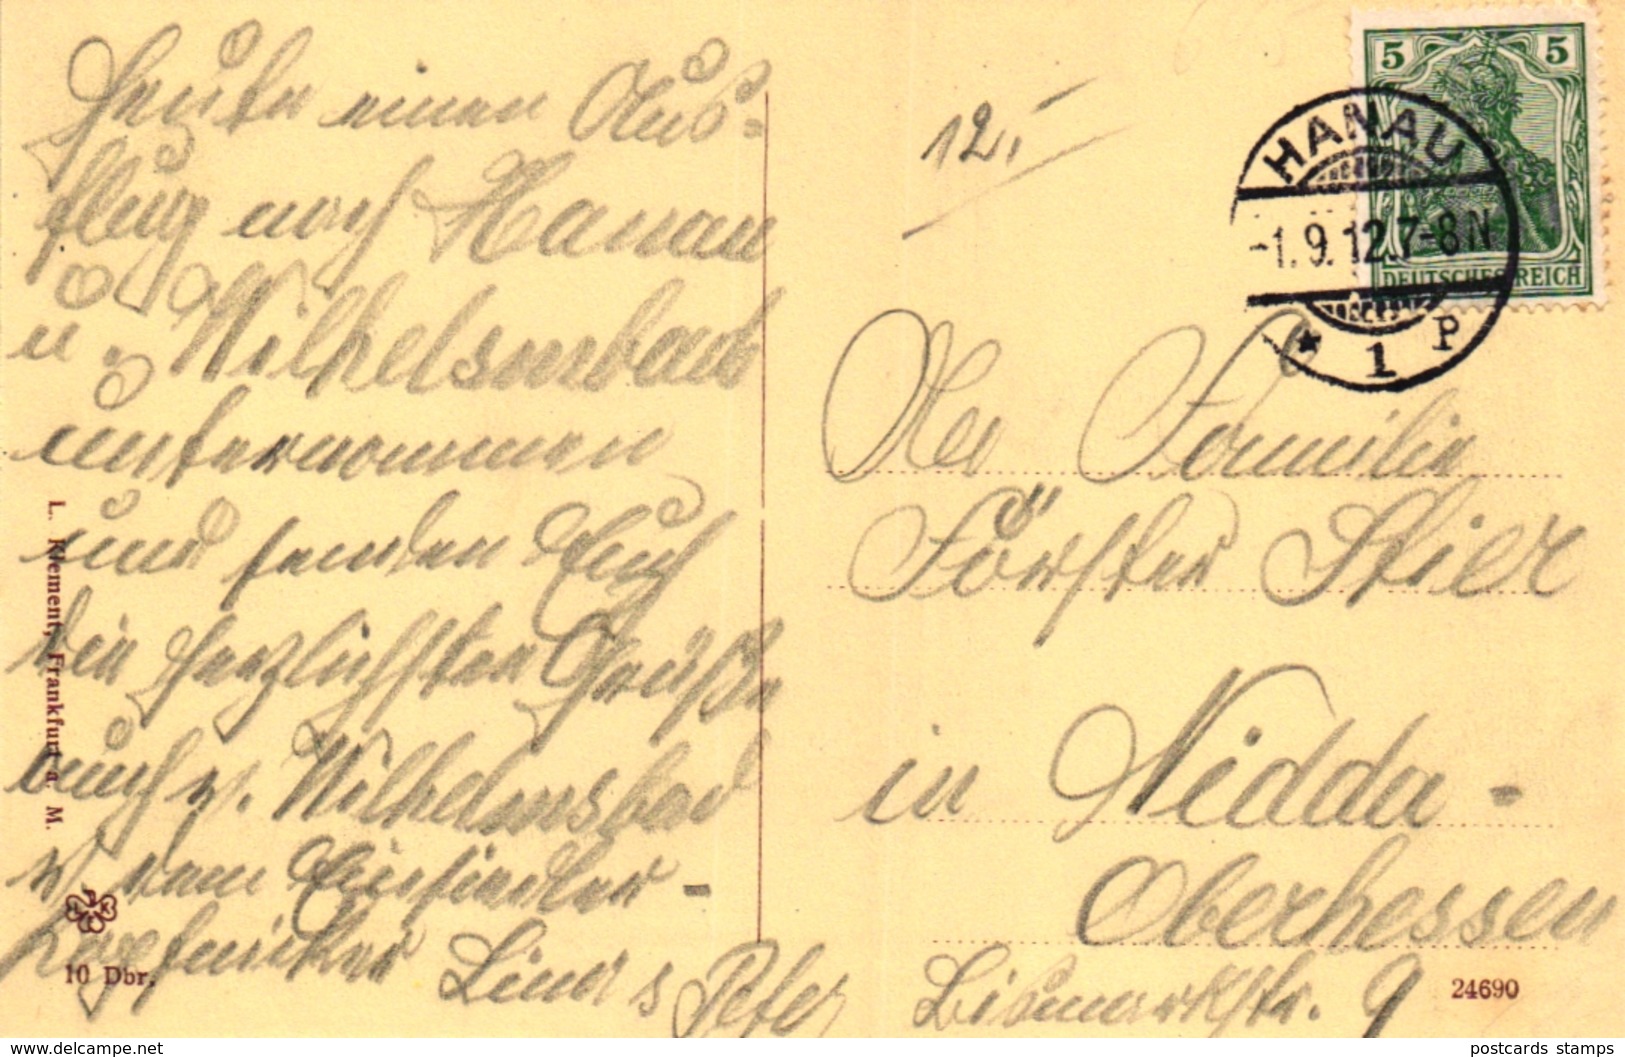 Heute einen Aus-
flug nach Hanau
u. Wilhelmsbad
unternommen
und senden Euch
die herzlichsten Grüße
auch v. Wilhelmsbad
v. dem Einsiedler-
Lina u Peter
L. Klement, Frankfurt a. M.
10 Dbr.
12.
5 5
DEUTSCHES REICH
HANAU
-1.9.12.7-8N
* 1 P
Der Familie
Förster Stier
in Nidda -
Oberhessen
Bismarckstr. 9
24690
postcards stamps